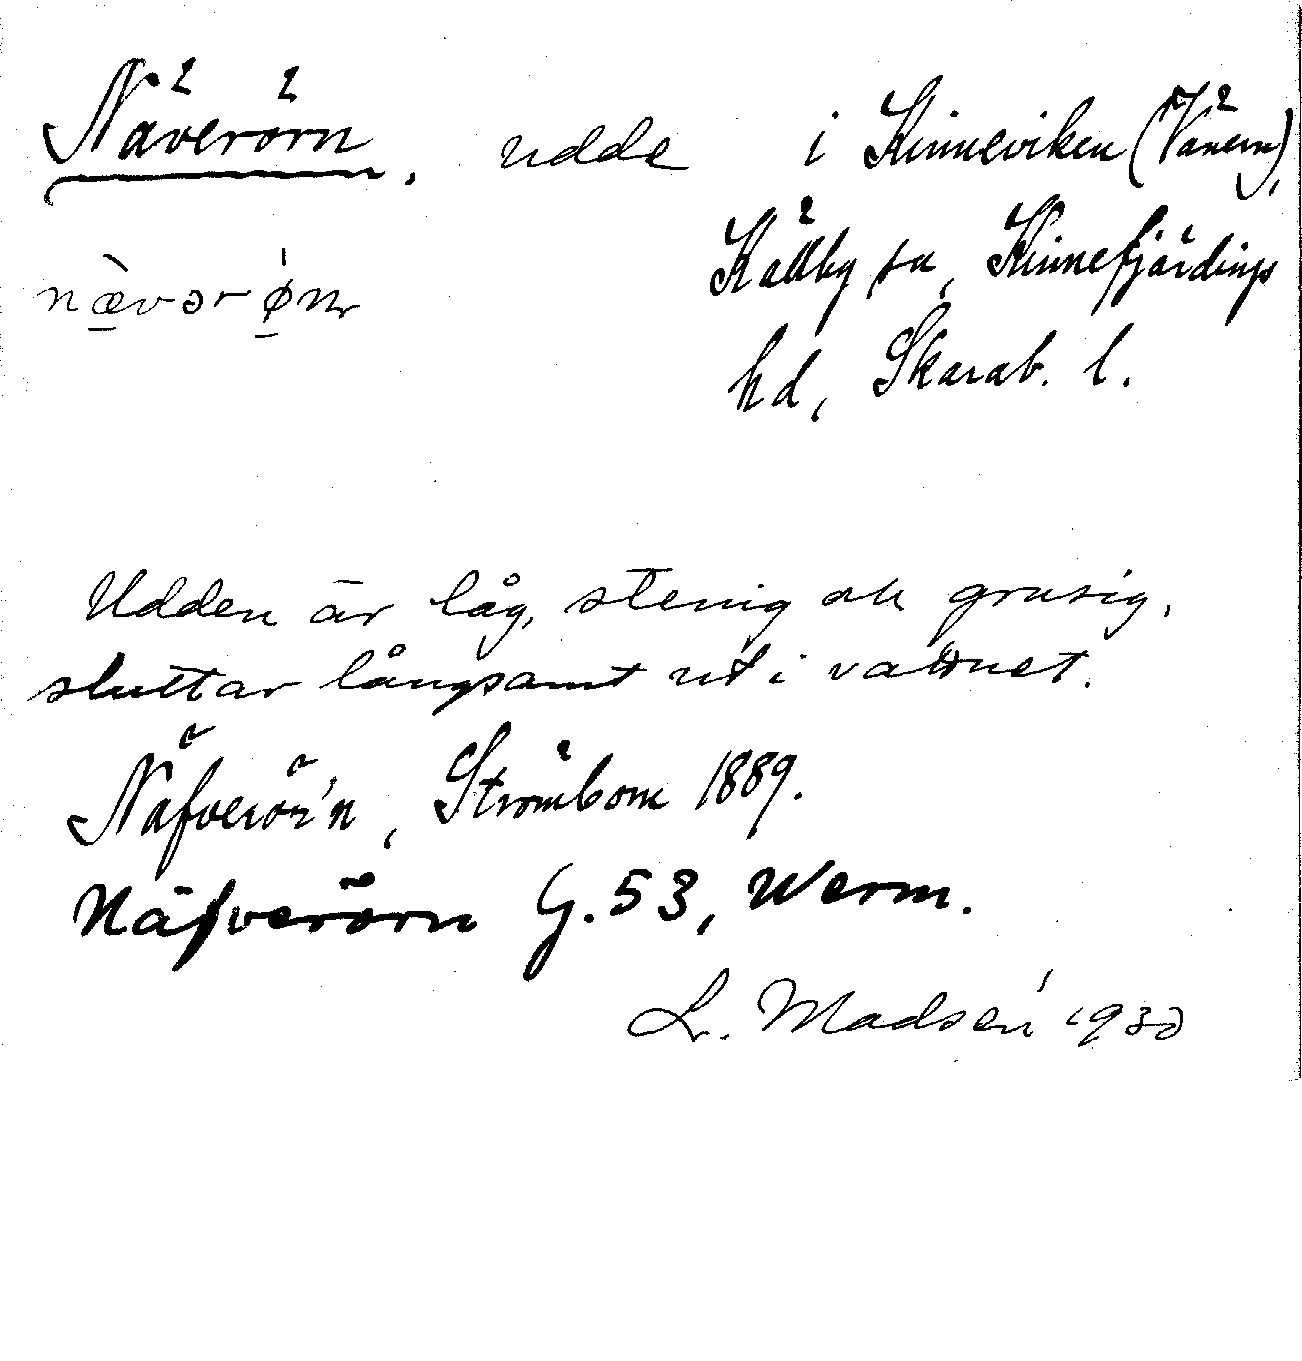 Näverörn, udde i Kinneviken (Vänern),
Källby sn, Kinnefjärdings
hd, Skarab. l.
nævərøn
Udden är låg, stenig och grusig,
sluttar långsamt ut i vattnet.
Näfverör'n, Strömbom 1889.
Näfverörn G. 53, Werm.
L. Madsén 1930